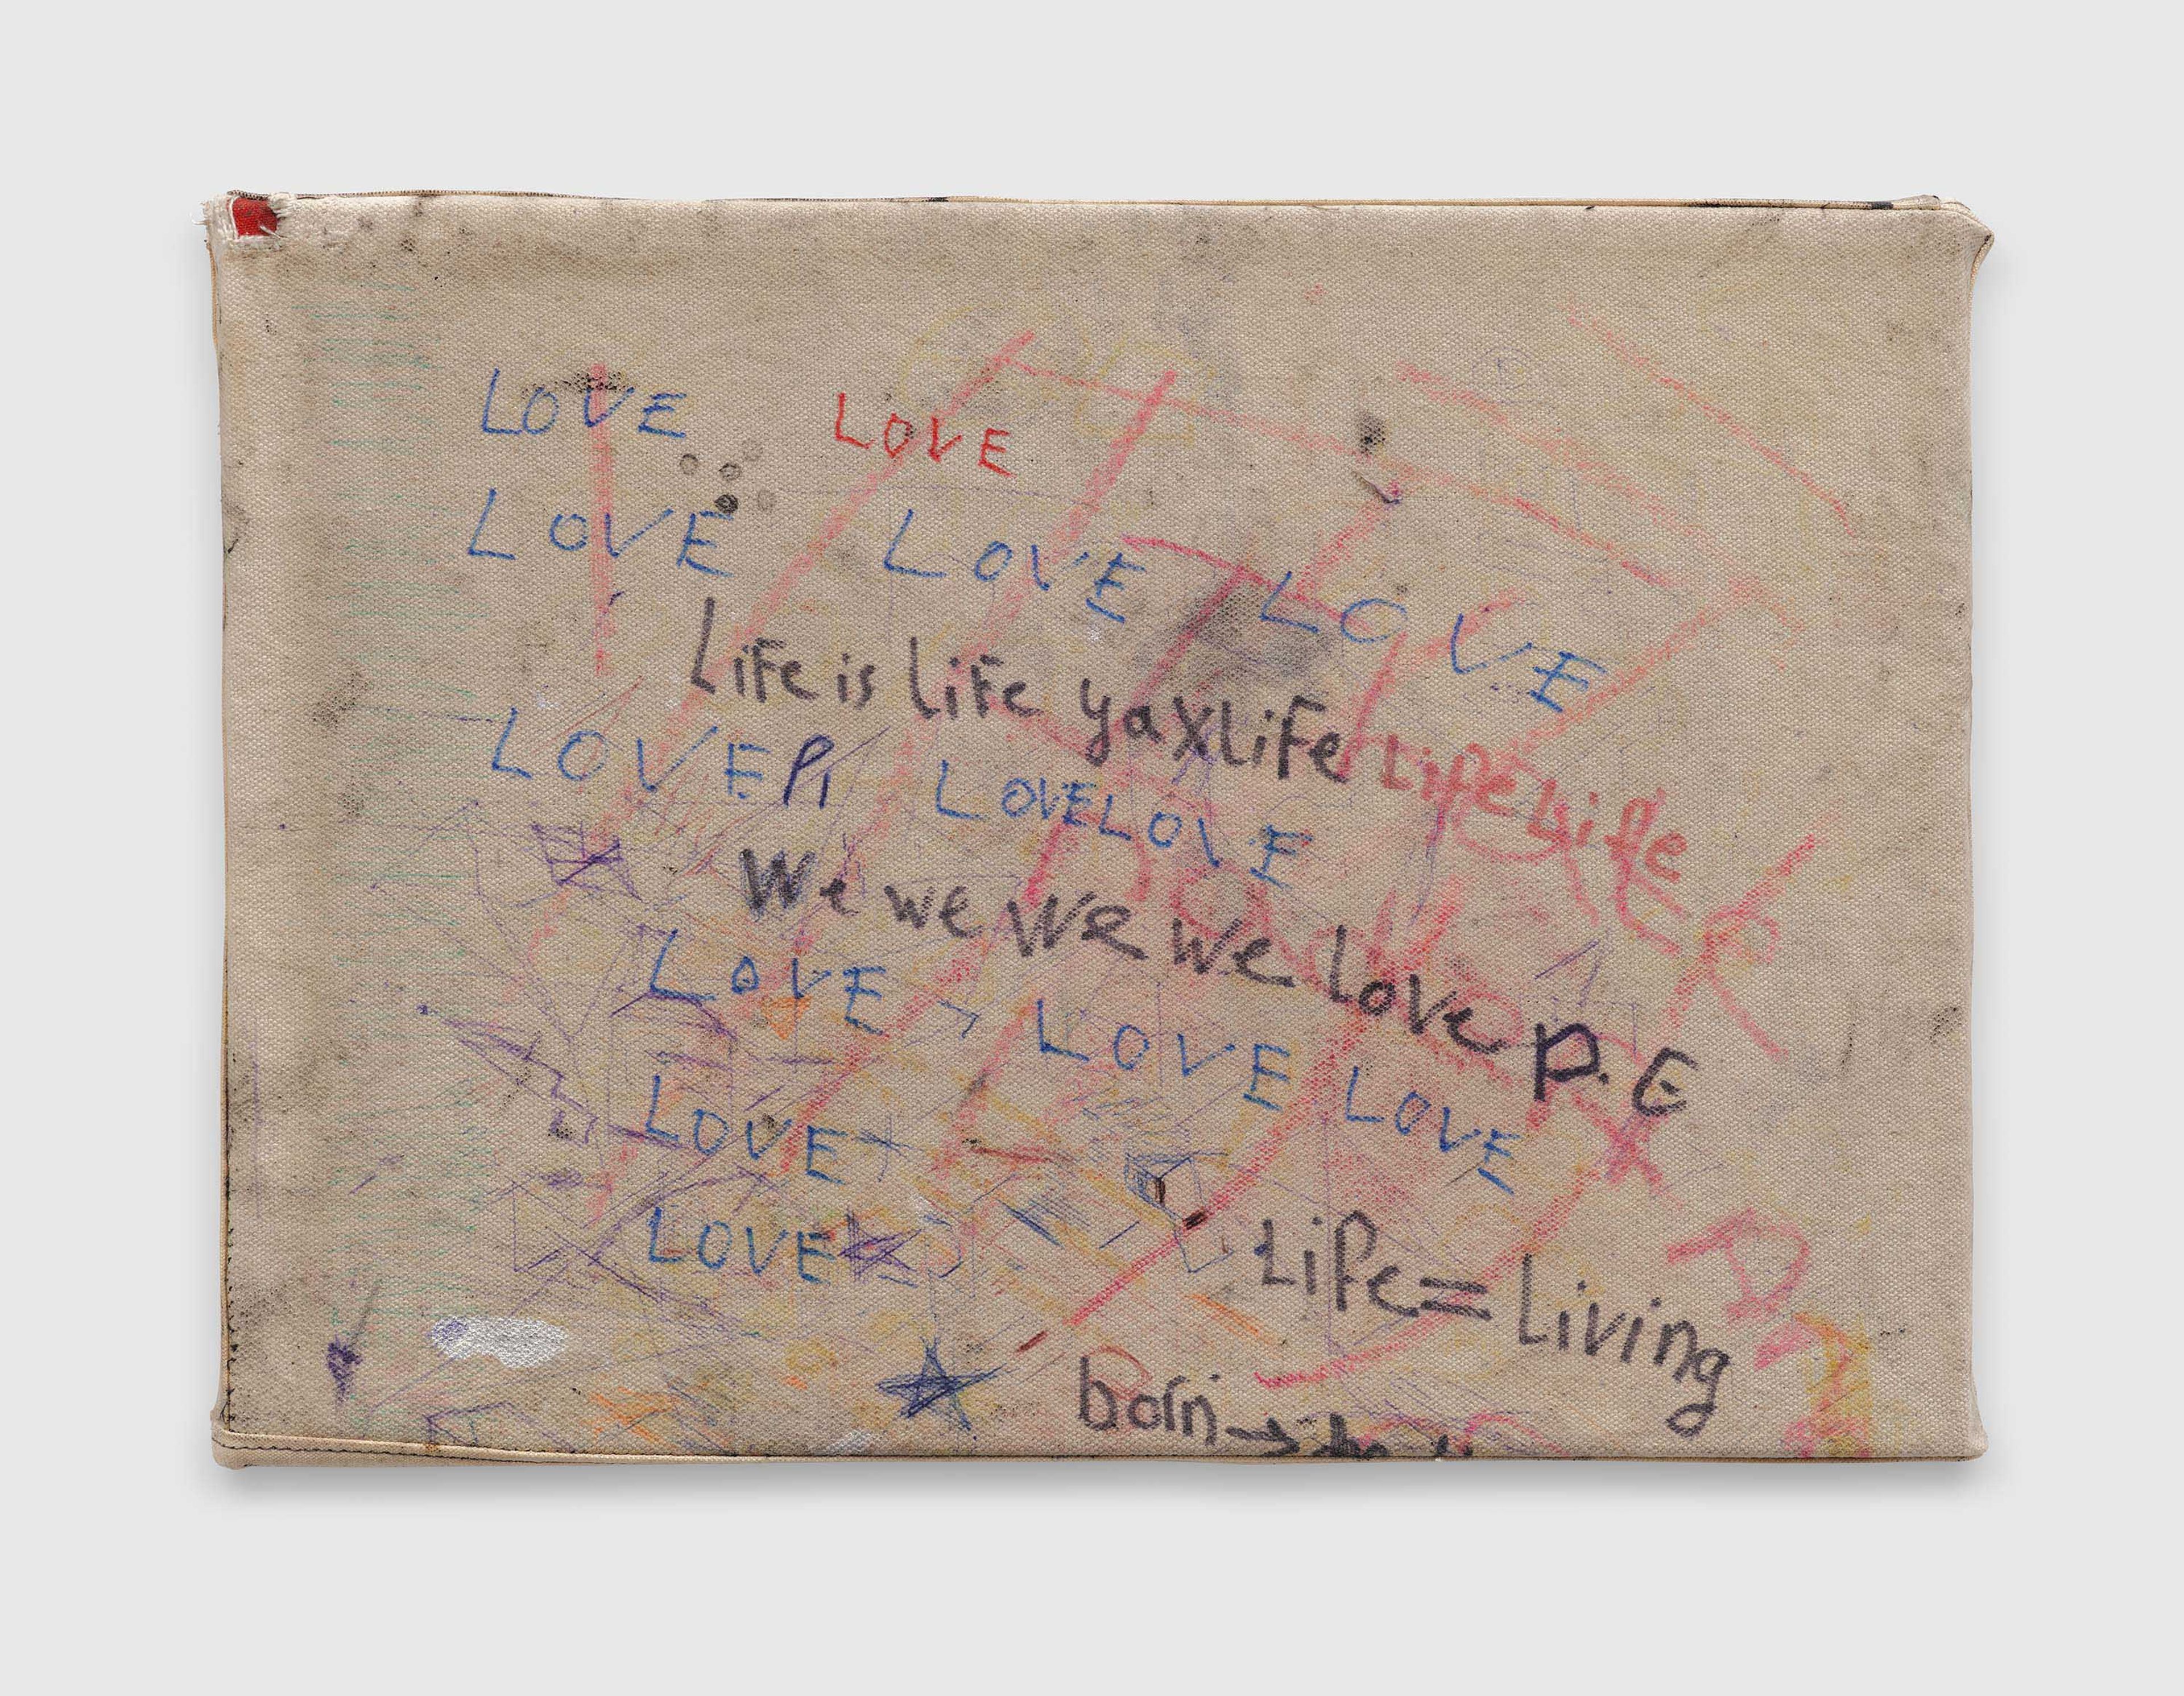 LOVE LOVE
LOVE LOVE LOVE
Life is life yaxlife Life Life
LOVE PI LOVELOVE
We we We We love P.E
LOVE LOVE LOVE
LOVE
LOVE
Life = living
born →